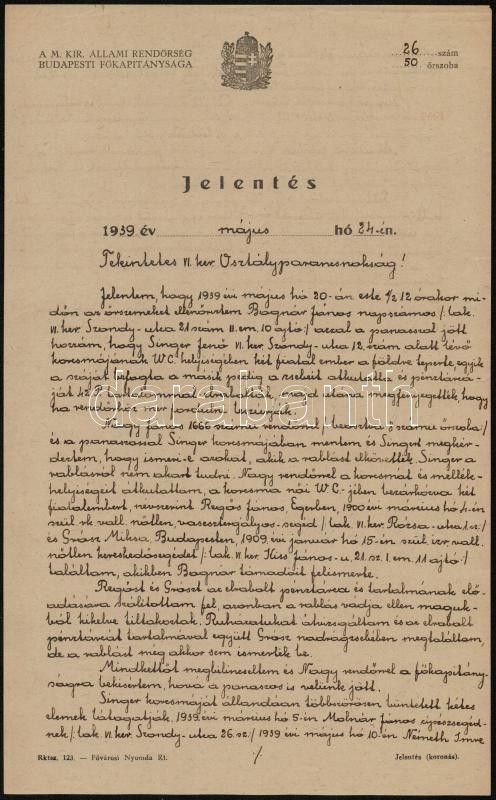 A M. KIR. ÁLLAMI RENDŐRSÉG
BUDAPESTI FŐKAPITÁNYSÁGA
26 szám
50 őrszoba
Jelentés
1939 év május hó 24-én.
Tekintetes VI. ker. Osztályparancsnokság!
Jelentem, hogy 1939 évi május hó 20-án este 1/2 12 órakor mi-
dőn az őrszemeket ellenőriztem Bognár János napszámos /: lak.
VI. ker. Szondy-utca 21 szám II. em. 10 ajtó :/ azzal a panasszal jött
hozzám, hogy Singer Jenő VI. ker. Szondy-utca 12 szám alatt lévő
korcsmájának W.C. helyiségében két fiatal ember a földre teperte egyik
a száját befogta a másik pedig a zsebeit átkutatta és pénztárcá-
ját tartalommal elrabolták majd utána megfenyegették, hogy
ha rendőrhöz mer fordulni
Nagy János 1666 számú rendőrrel /: beosztva 9 számú őrszoba :/
és a panasossal Singer korcsmájában mentem és Singert megkér-
deztem, hogy ismeri-e azokat, akik a rablást elkövették. Singer a
rablásról nem akart tudni. Nagy rendőrrel a korcsmát és mellék-
helyiségeit átkutattam, a korcsma női W.C.-jében bezárkózva két
fiatalembert, névszerint Regős János, Egerben, 1900 évi március hó 4-én
szül. rk. vall. nőtlen, vasesztergályos-segéd /: lak. VI. ker. Rózsa-utca 1 sz :/
és Grósz Miksa, Budapesten, 1909 évi január hó 15-én szül. izr. vall.
nőtlen kereskedősegédet /: lak. VI. ker. Kiss János-u. 21. sz. I. em. 11 ajtó :/
találtam, akikben Bognár támadóit felismerte.
Regőst és Grószt az elrabolt pénztárca és tartalmának elő-
adására szólítottam fel, azonban a rablás vádja ellen maguk-
ból kikelve tiltakoztak. Ruházatukat átvizsgáltam és az elrabolt
pénztárcát tartalmával együtt Grósz nadrágzsebében megtaláltam,
de a rablást még akkor sem ismerték be.
Mindkettőt megbilincseltem és Nagy rendőrrel a főkapitány-
ságra bekísértem, hová a panaszos is velünk jött.
Singer korcsmáját állandóan többszörösen büntetett kétes
elemek látogatják. 1939 évi március hó 5-én Molnár János cipészsegéd-
nek /: lak. VI. ker. Szondy-utca 26. sz. :/ 1939 évi május hó 10-én Németh Imre
./.
Rktsz. 123. — Fővárosi Nyomda Rt.
Jelentés (koronás).
darabanth